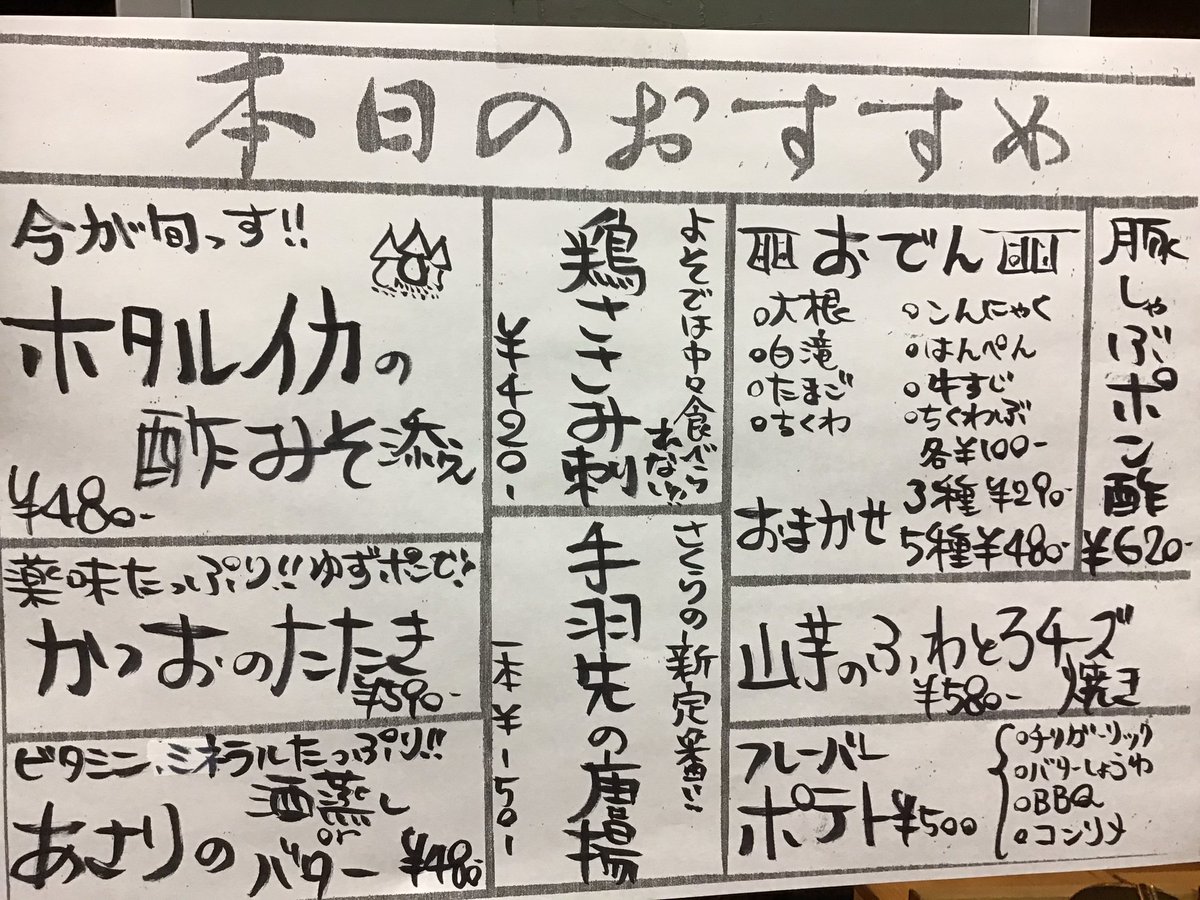 本日のおすすめ
今が旬っす!!
ホタルイカの
酢みそ添え
¥480-
薬味たっぷり!!ゆずポンで!
かつおのたたき
¥590-
ビタミン、ミネラルたっぷり!!
あさりの
酒蒸し
or
バター
¥480-
よそでは中々食べら
れない!!
鶏ささみ刺
¥420-
さくらの新定番!!
手羽先の唐揚
一本¥150-
おでん
○大根
○こんにゃく
○白滝
○はんぺん
○たまご
○牛すじ
○ちくわ
○ちくわぶ
各¥100-
おまかせ
3種¥290-
5種¥480-
豚しゃぶポン酢
¥620-
山芋のふわとろチーズ
焼き
¥580-
フレーバー
ポテト¥500
○チリガーリック
○バターしょうゆ
○BBQ
○コンソメ